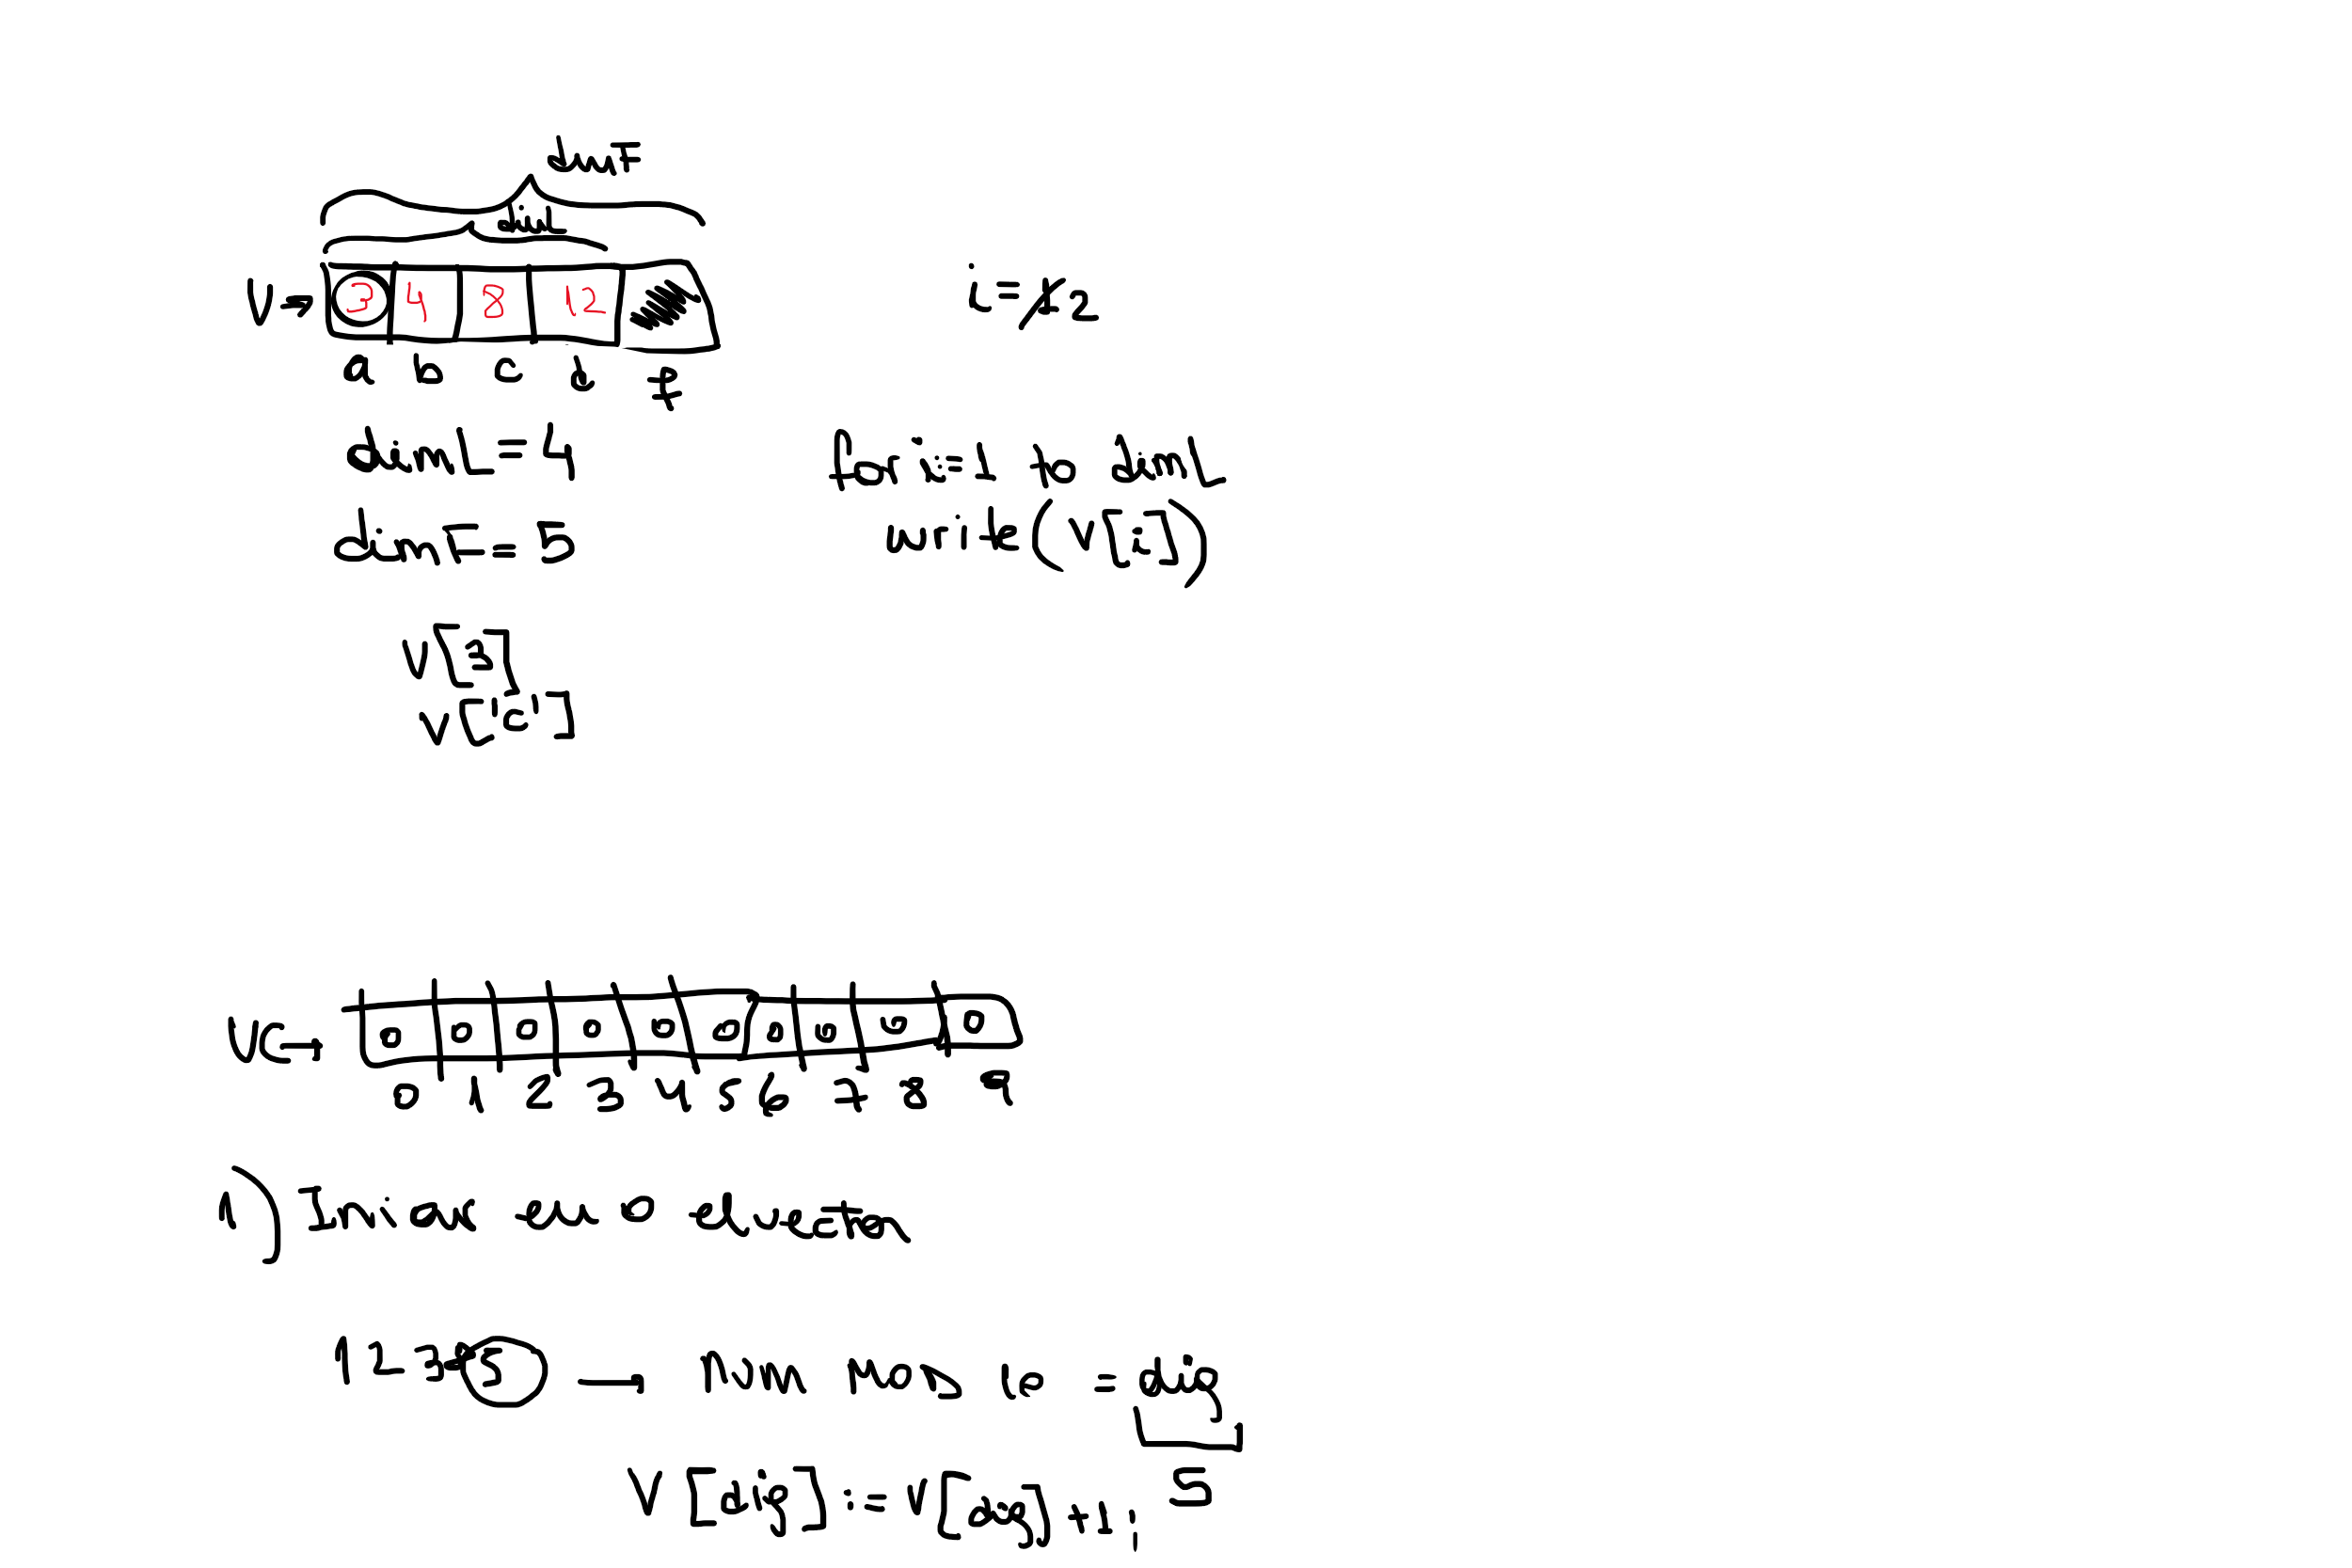 dimF
dimL
V→ 3 4 8 12
a b c d f
i = 1 2
dimL = 4
dimF = 5
for i:=1 to dimL
write(V[i])
V[3]
V['c']
VC→ 0 0 0 0 0 0 0 0 0 0
0 1 2 3 4 5 6 7 8 9
1) Iniciar en 0 el vector
12385 → num MOD 10 = dig
5
V[dig] := V[dig] +1;